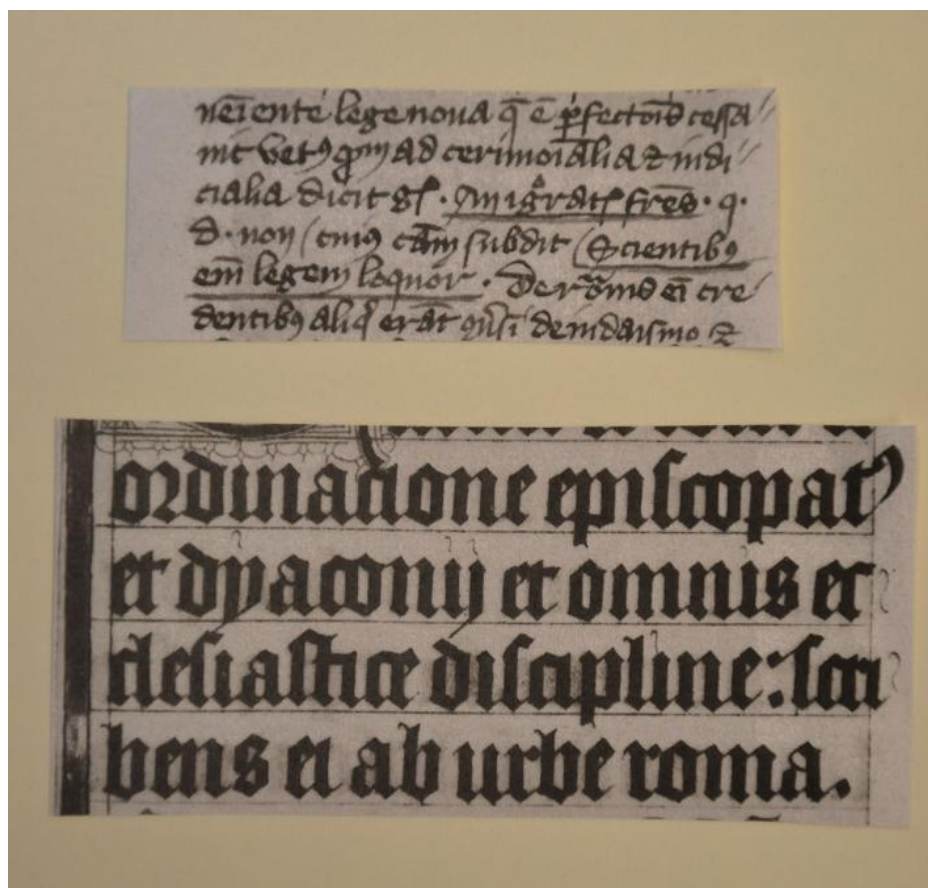 neiente lege noua q̄ ē ꝑfectōis cessa
uit vetꝰ ad cerimoīalia ⁊ iudi
cialia dicit gl̄. An igrat̄ fr̄es. q.
d. non cuiꝰ cām subdit Scientibꝰ
enī legem loquor. De eī cre
dentibꝰ aliq̄ erāt de iudaismo ⁊
ordinacione episcopatꝰ
et dyaconij et omnis ec
clesiastice discipline: scri
bens ei ab urbe roma.